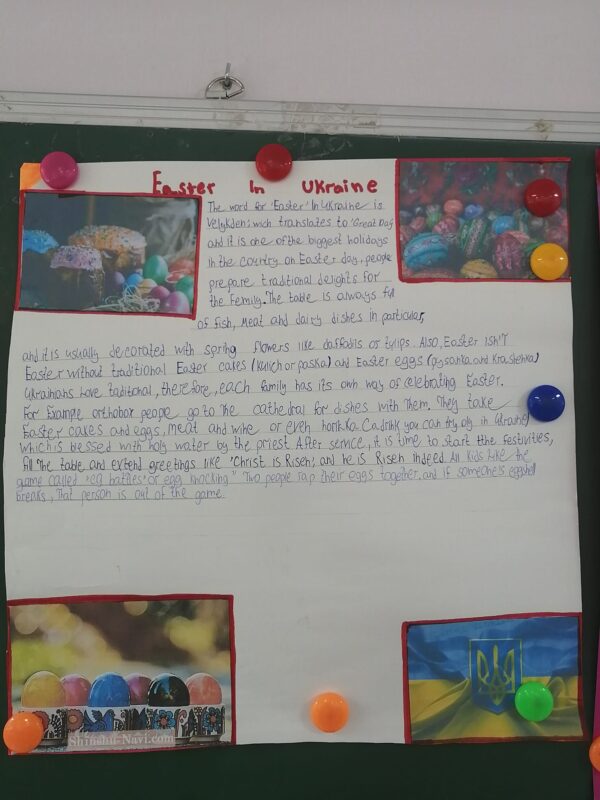 Easter In Ukraine
The word for 'Easter' In Ukraine is
Velykden; wich translates to 'Great Day
and it is one of the biggest holidays
in the country on Easter day, people
prepare traditional delights for
the Femily. The table is always full
of fish, meat and dairy dishes in particular,
and it is usually decorated with spring flowers like daffodils or tylips. Also, Easter isn't
Easter without traditional Easter cakes (kulich or paska) and Easter eggs (pysanka and Krashenka)
Ukrainians Love taditional, therefore, each family has its own way of celebrating Easter.
For Example orthobox people go to the cathedral for dishes with Them. They take
Easter cakes and eggs, meat and wine or even horilka (a drink you can try olg in Ukraine)
which is blessed with holy water by the priest After service, it is time to start tthe festivities,
fill The table and extend greetings like 'Christ is Risen; and he is Risen indeed. All Kids like the
game called 'eg battles' or egg knocking" Two people rap their eggs together, and if someone's eggshell
breaks, that person is out of the game.
Shinshu-Navi.com